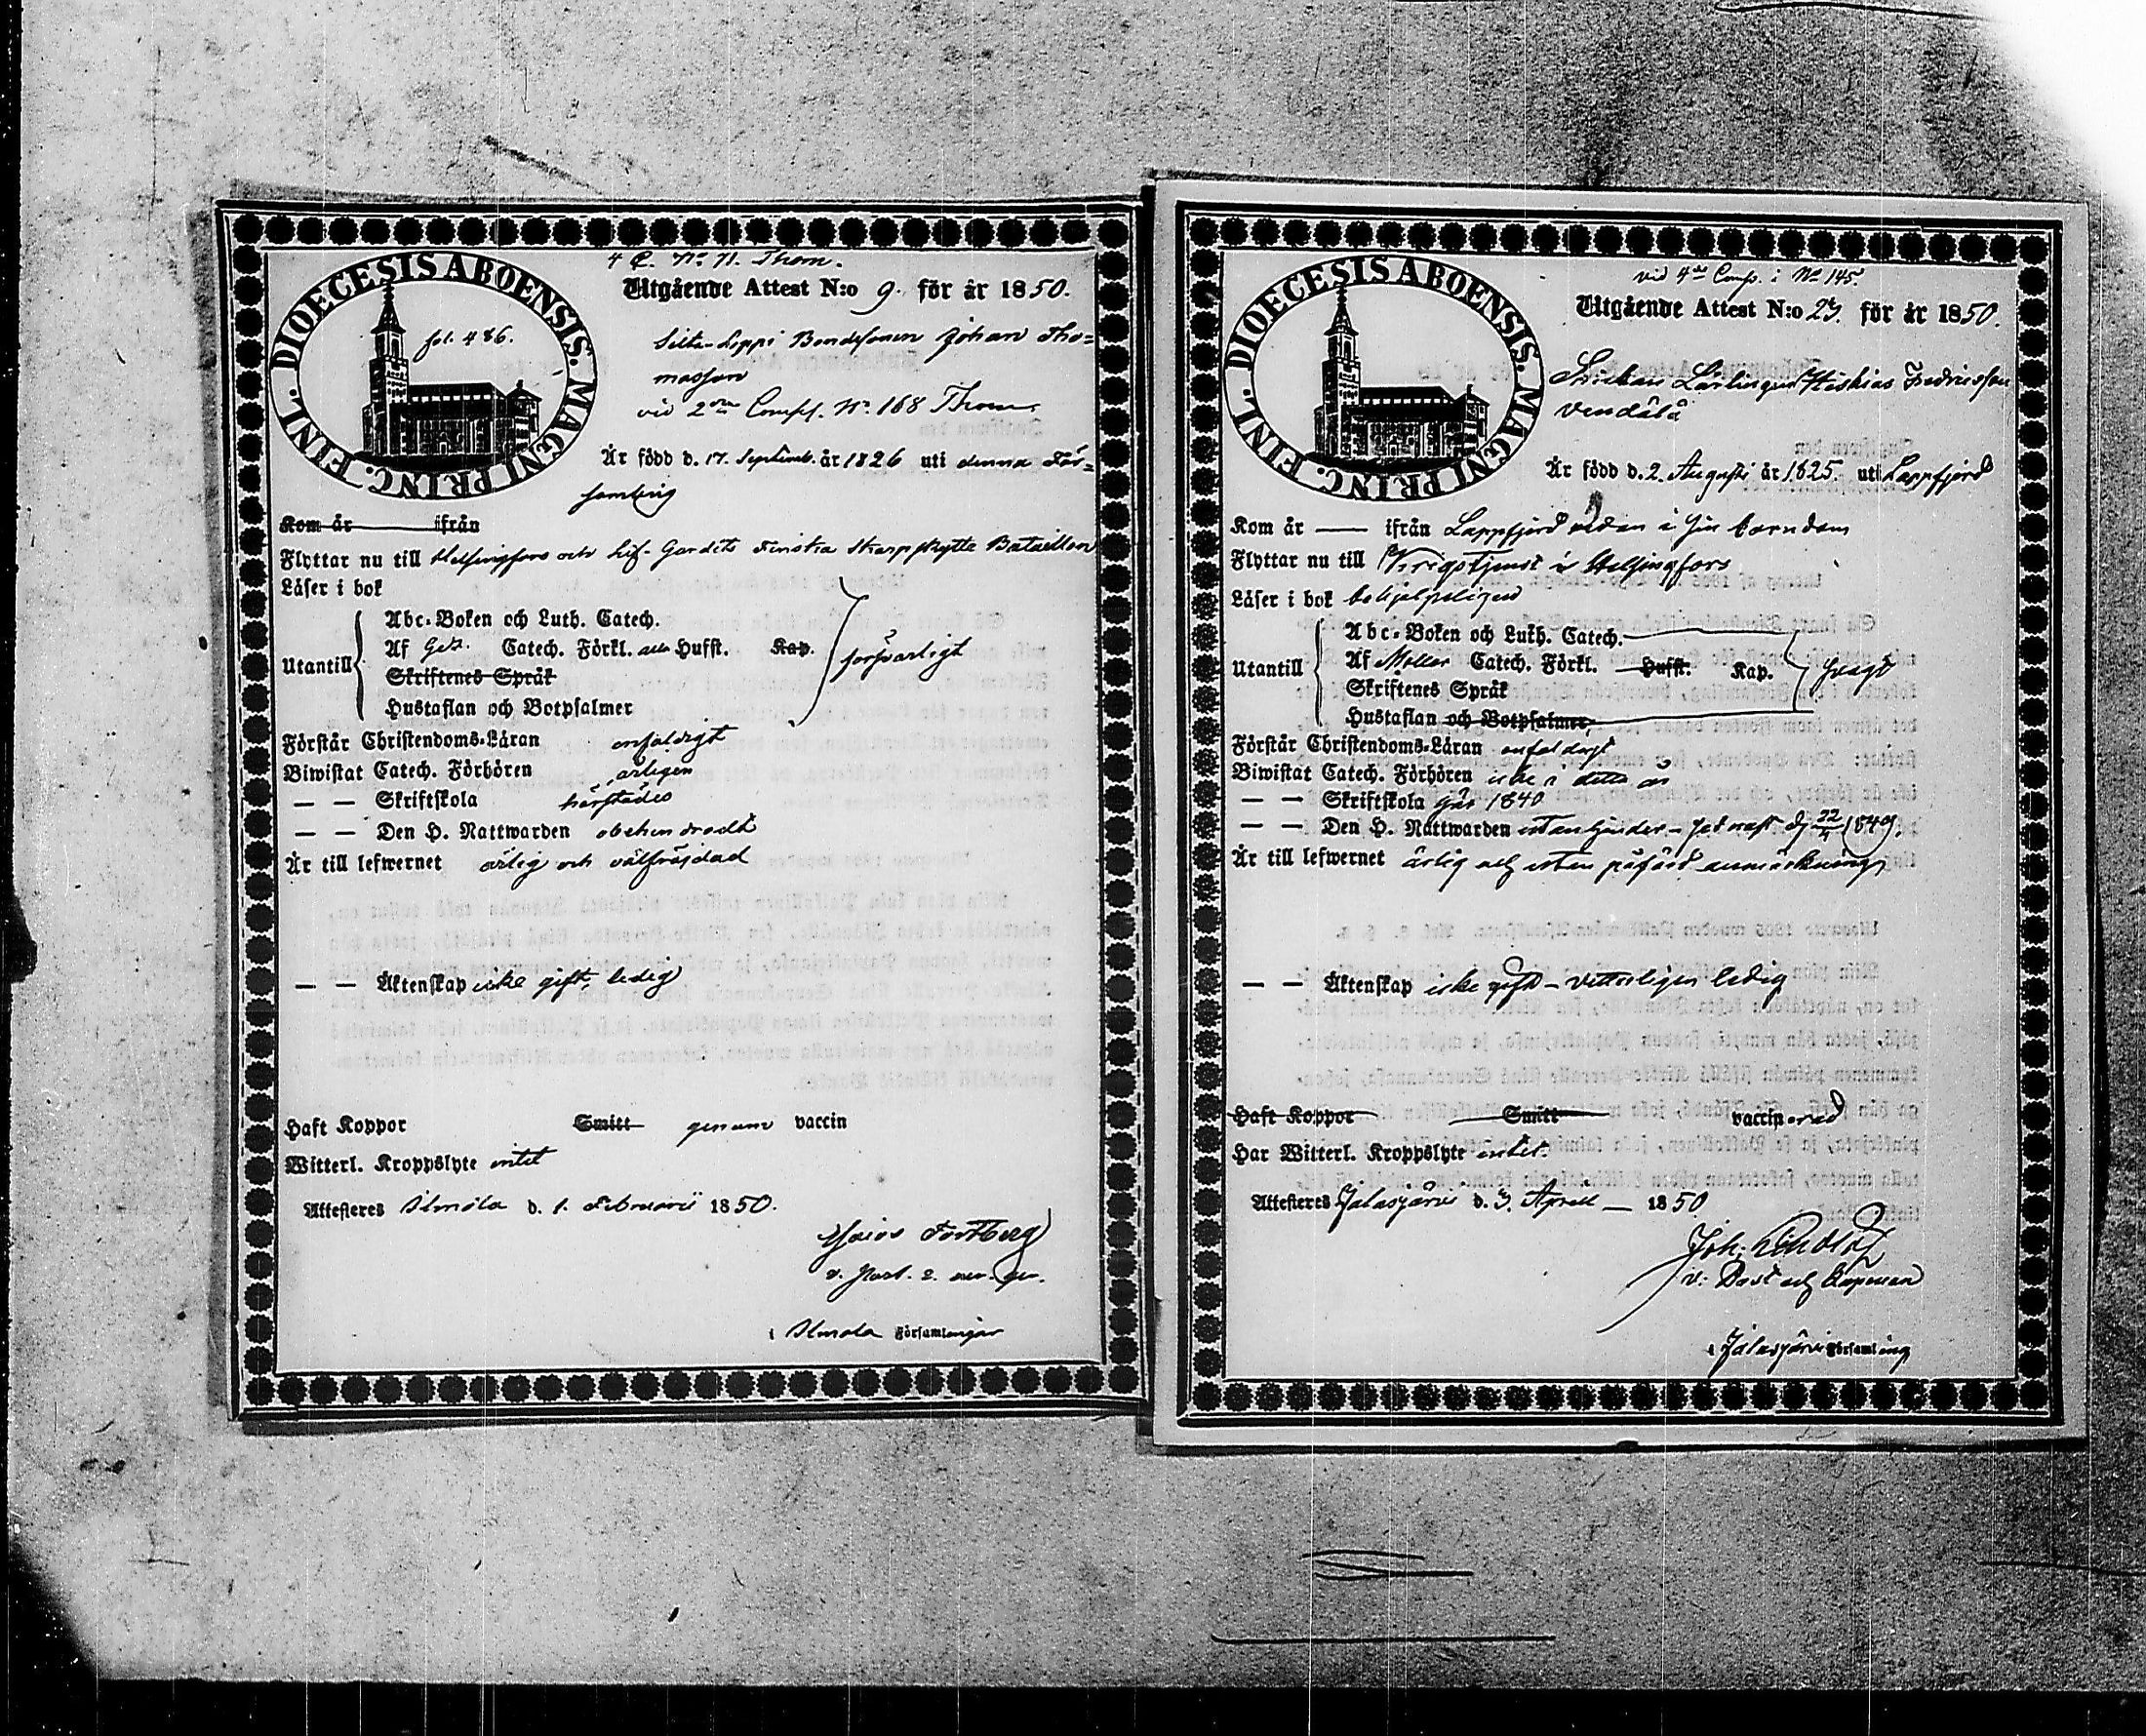 DIOECESIS ABOENSIS. MAGNI PRINC. FINL.
fol. 486.
4 C. No 71. Thom.
Utgående Attest N:o 9. för år 1850.
Bondesonen Johan Tho=
masson
vid 2dra Comp. No 168 Thom.
Är född d. 17. Septemb. år 1826 uti denna För=
samling
Kom år ifrån
Flyttar nu till Helsingfors och Lif-Gardets Finska Skarpskytte Bataillon
Läser i bok
Utantill
Abc-Boken och Luth. Catech.
Af Catech. Förkl. Hufst. Kap.
Skriftenes Språk
Hustaflan och Botpsalmer
försvarligt
Förstår Christendoms-Läran enfaldigt
Biwistat Catech. Förhören årligen
— — Skriftskola härstädes
— — Den H. Nattwarden obehindradt
Är till lefwernet ärlig och välfräjdad
— — Äktenskap icke gift, ledig
Haft Koppor Smitt genom vaccin
Witterl. Kroppslyte intet
Attesteres Ilmola d. 1. Februarii 1850.
v. Past.
i Ilmola Församlingar
DIOECESIS ABOENSIS. MAGNI PRINC. FINL.
vid 4de Comp. i No 145.
Utgående Attest N:o 23. för år 1850.
Lärlingen Hiskias Fredricsson
Vendälä
Är född d. 2. Augusti år 1825. uti Lappfjerd
Kom år — ifrån Lappfjerd redan i sin barndom
Flyttar nu till Krigstjenst i Helsingfors
Läser i bok behjelpeligen
Utantill
Abc-Boken och Luth. Catech.
Af Möller Catech. Förkl. Hufst. Kap.
Skriftenes Språk
Hustaflan och Botpsalmer,
svagt
Förstår Christendoms-Läran enfaldigt
Biwistat Catech. Förhören icke i detta år
— — Skriftskola går 1840
— — Den H. Nattwarden utan hinder – sednast d. 22/4 1849.
Är till lefwernet ärlig och utan påförd anmärkning,
— — Äktenskap icke gift – vetterligen ledig
Haft Koppor Smitt vaccinerad
Har Witterl. Kroppslyte intet.
Attesteres Jalasjärvi d. 3. April — 1850
Joh:
v: Past och Capellan
i Jalasjärvi Församling